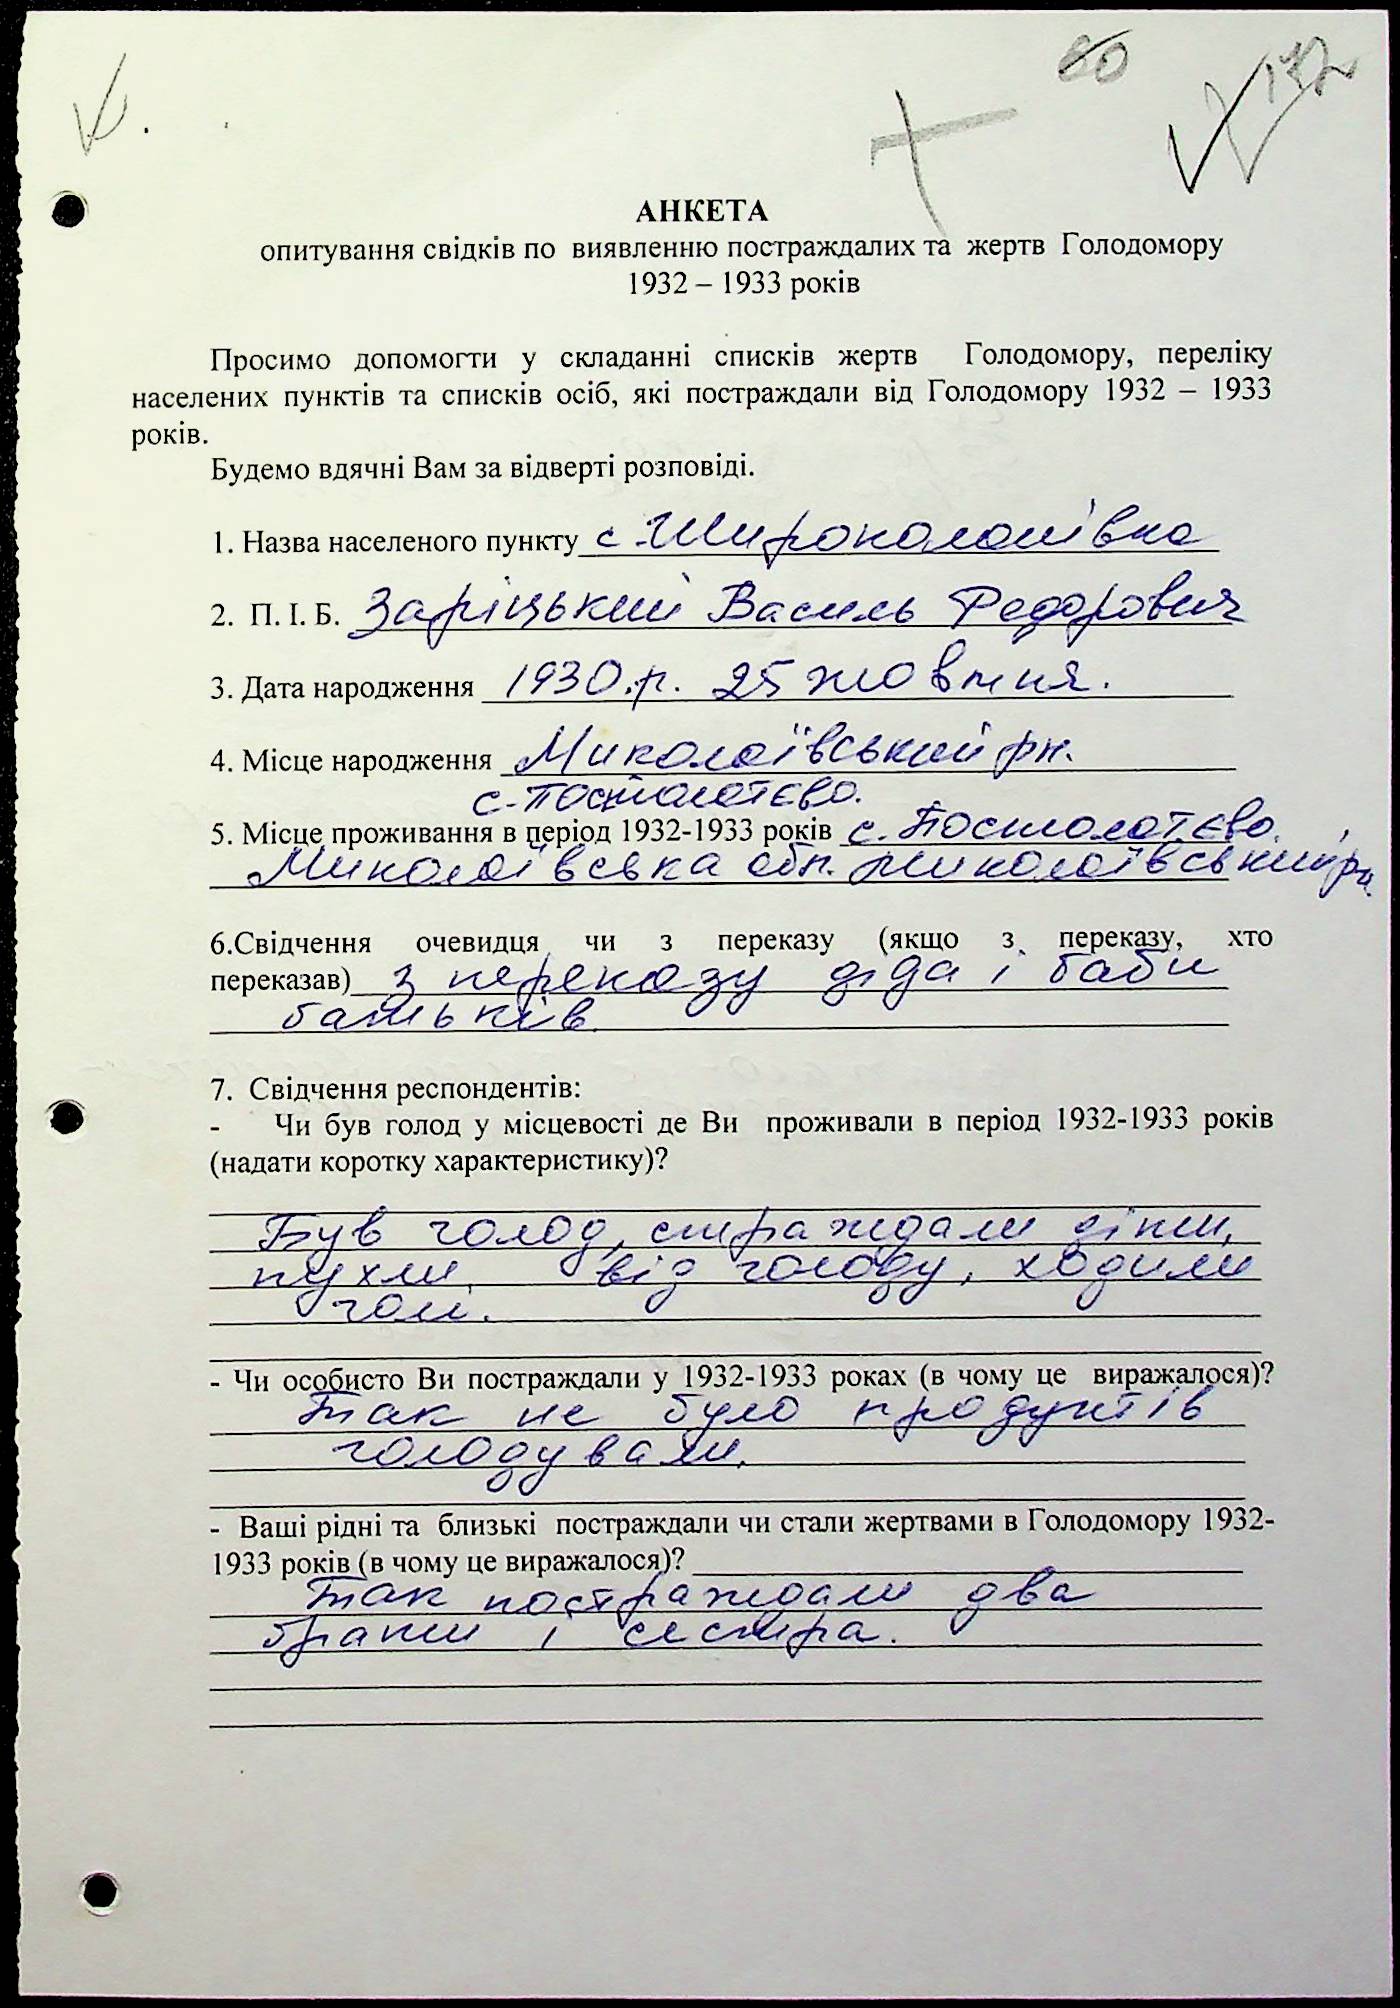 80
172
АНКЕТА
опитування свідків по виявленню постраждалих та жертв Голодомору
1932 – 1933 років
Просимо допомогти у складанні списків жертв Голодомору, переліку
населених пунктів та списків осіб, які постраждали від Голодомору 1932 – 1933
років.
Будемо вдячні Вам за відверті розповіді.
1. Назва населеного пункту с. Широколанівка
2. П. І. Б. Заріцький Василь Федорович
3. Дата народження 1930.р. 25 жовтня.
4. Місце народження Миколаївський рн.
с.
5. Місце проживання в період 1932-1933 років с.
Миколаївська обл. Миколаївський рн
6.Свідчення очевидця чи з переказу (якщо з переказу, хто
переказав) з переказу діда і баби
батьків
7. Свідчення респондентів:
- Чи був голод у місцевості де Ви проживали в період 1932-1933 років
(надати коротку характеристику)?
Був голод, страждали діти,
пухли від голоду, ходили
голі.
- Чи особисто Ви постраждали у 1932-1933 роках (в чому це виражалося)?
Так не було продуктів
голодували.
- Ваші рідні та близькі постраждали чи стали жертвами в Голодомору 1932-
1933 років (в чому це виражалося)?
Так постраждали два
брати і сестра.